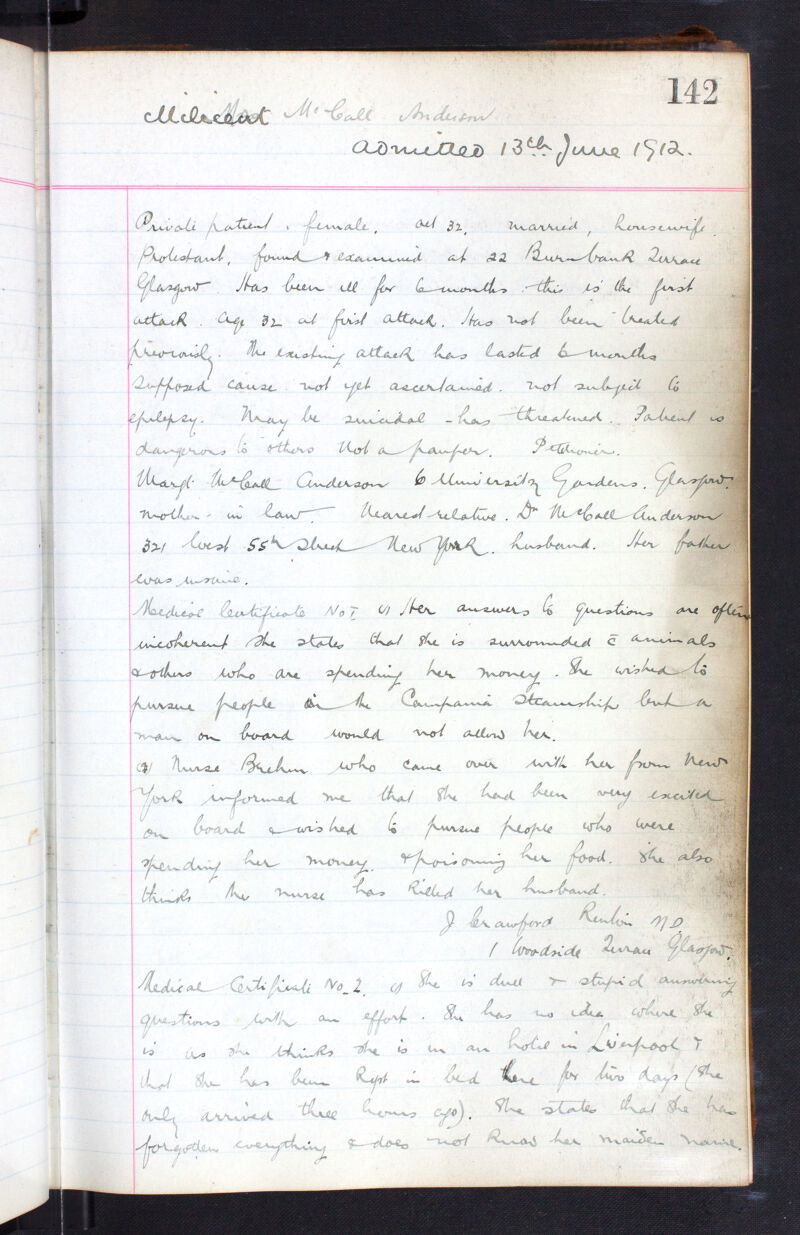 142
Milicent McCall Anderson
Admitted 13th June 1912.
Private patient, female, aet 32, married, housewife.
Protestant, found & examined at 22 Burnbank Terrace
Glasgow. Has been ill for 6 months this is the first
attack. age 32 at first attack. Has not been treated
previously. The existing attack has lasted 6 months
Supposed cause not yet ascertained. not subject to
epilepsy. May be suicidal - has threatened. Patient is
dangerous to others Not a pauper. Petitioner.
Margt. McCall Anderson 6 University Gardens. Glasgow.
mother-in law. Nearest relative. Dr McCall Anderson
321 West 55th Street New York. husband. Her father
was insane.
Medical Certificate No I. (1) Her answers to questions are often
incoherent She states that she is surrounded c̄ animals
& others who are spending her money. She wished to
pursue people in the Campania Steamship but a
man on board would not allow her.
(2) Nurse Brehm who came over with her from New
York informed me that she had been very excited
on board & wished to pursue people who were
spending her money & poisoning her food. She also
thinks the nurse has killed her husband.
J Crawford Renton M.D.
1 Woodside Terrace Glasgow.
Medical Certificate No_2. (1) She is dull & stupid answering
questions with an effort. She has no idea where she
is as she thinks she is in an hotel in Liverpool &
that she has been kept in bed there for two days (She
only arrived three hours ago). She states that she has
forgotten everything & does not know her maiden name.